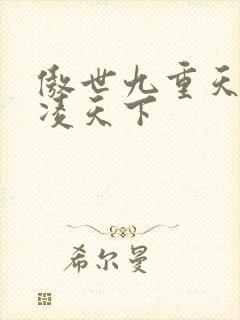 傲世九重天
凌天下
希尔曼